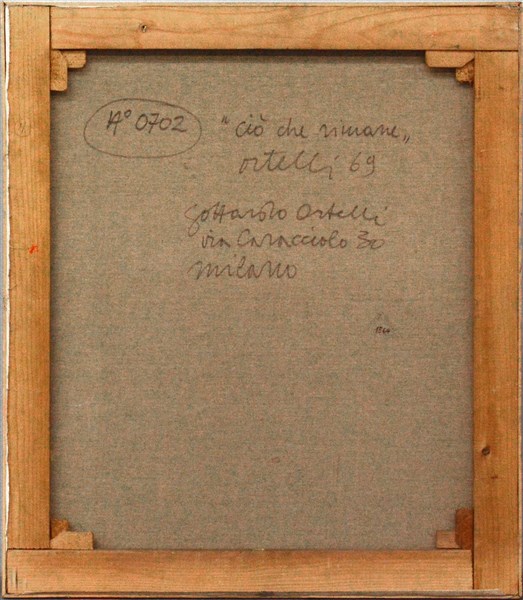 A° 0702
"ciò che rimane„
ortelli 69
Gottardo Ortelli
via Caracciolo 30
milano